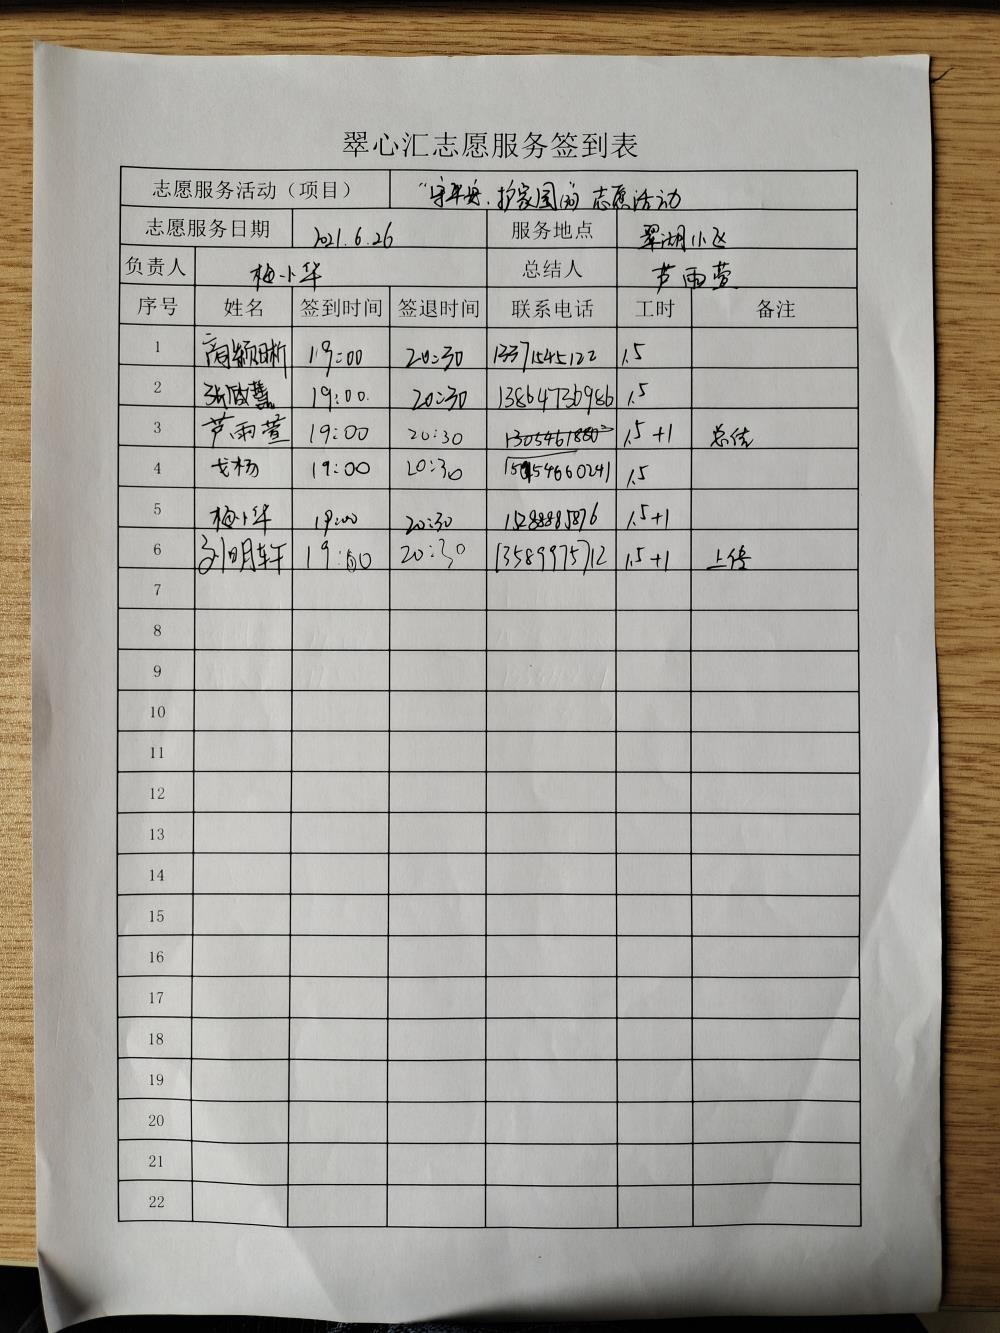 翠心汇志愿服务签到表
志愿服务活动（项目） “守平安、护家园”的 志愿活动
志愿服务日期 2021.6.26 服务地点 翠湖小区
负责人 梅小华 总结人 芦雨萱
序号 姓名 签到时间 签退时间 联系电话 工时 备注
1 19:00 20:30 13371545122 1.5
2 19:00. 20:30 13864736986 1.5
3 芦雨萱 19:00 20:30 1.5+1 总结
4 戈杨 19:00 20:30 1.5
5 梅小华 19:00 20:30 15288885876 1.5+1
6 刘明轩 19:00 20:30 13589975712 1.5+1 上传
7
8
9
10
11
12
13
14
15
16
17
18
19
20
21
22